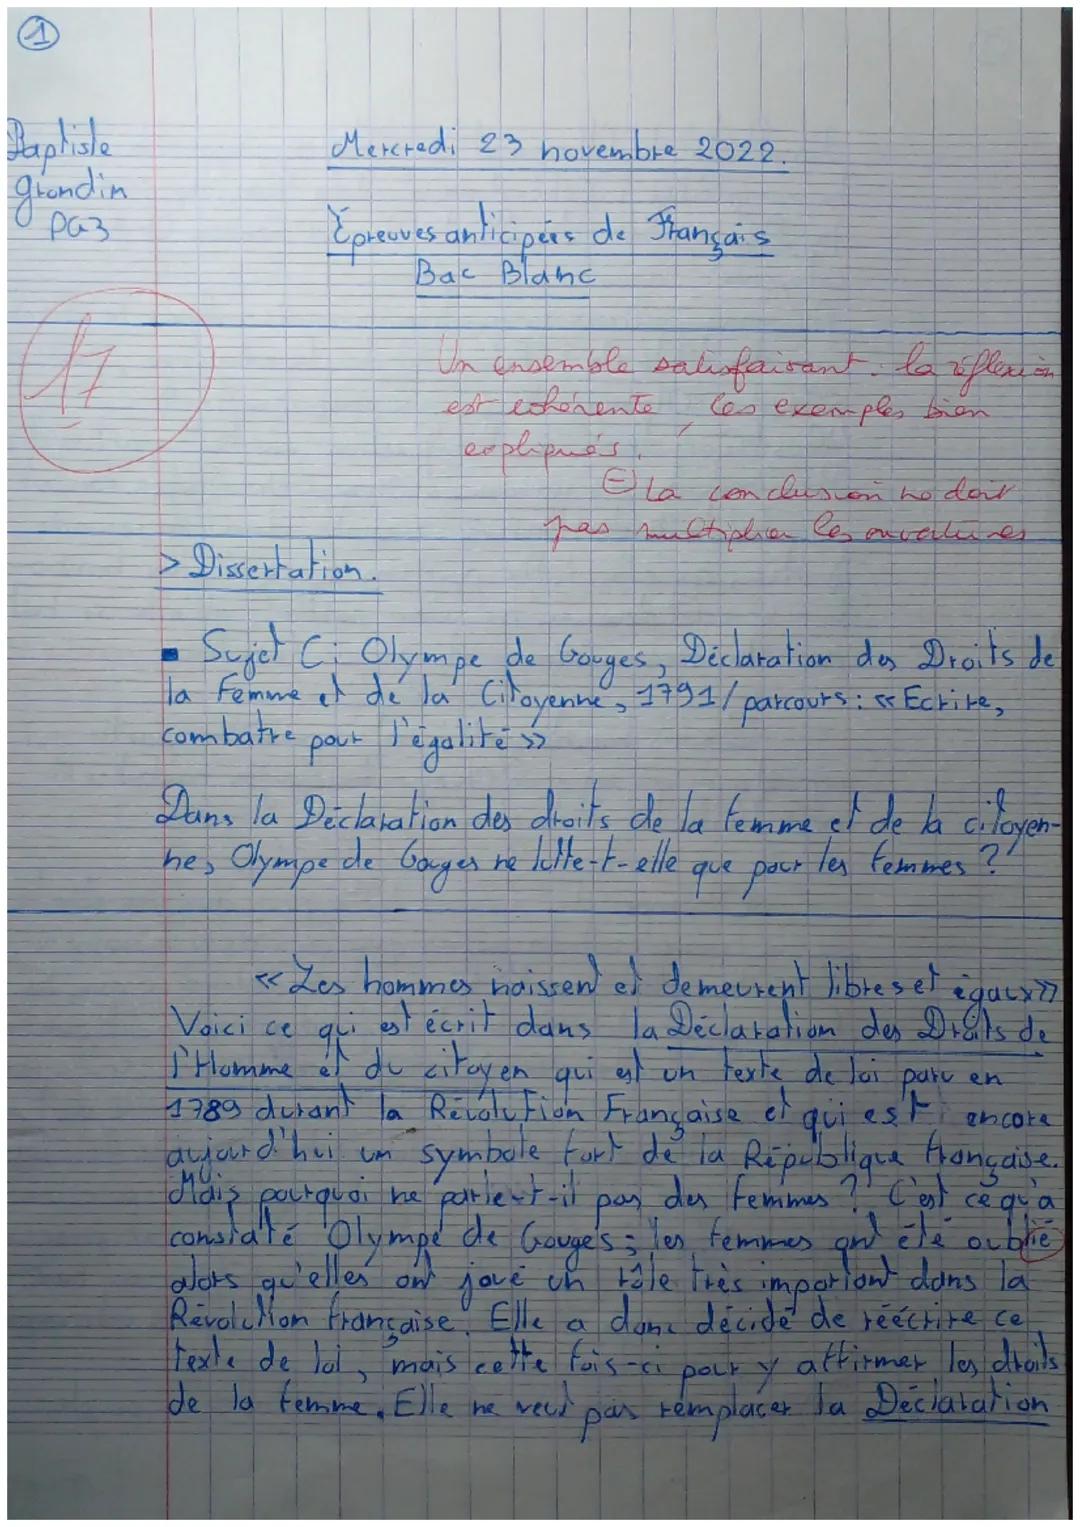 1
Baptiste
grondin
PG3
Mercredi 23 novembre 2022.
Épreuves anticipées de Français
Bac Blanc
17
Un ensemble satisfaisant. la réflexion
est cohérente, les exemples bien
expliqués.
⊖ La conclusion ne doit
pas multiplier les ouvertures
> Dissertation.
▪ Sujet C: Olympe de Gouges, Déclaration des Droits de
la Femme et de la Citoyenne, 1791/parcours: « Ecrire,
combattre pour l'égalité »
Dans la Déclaration des droits de la femme et de la citoyen-
ne, Olympe de Gouges ne lutte-t-elle que pour les femmes ?
« Les hommes naissent et demeurent libres et égaux »
Voici ce qui est écrit dans la Déclaration des Droits de
l'Homme et du citoyen qui est un texte de loi paru en
1789 durant la Révolution Française et qui est encore
aujourd'hui un symbole fort de la République française.
Mais pourquoi ne parle-t-il pas des femmes ? C'est ce qu'a
constaté Olympe de Gouges ; les femmes ont été oublié
alors qu'elles ont joué un rôle très important dans la
Révolution française. Elle a donc décidé de réécrire ce
texte de loi, mais cette fois-ci pour y affirmer les droits
de la femme. Elle ne veut pas remplacer la Déclaration